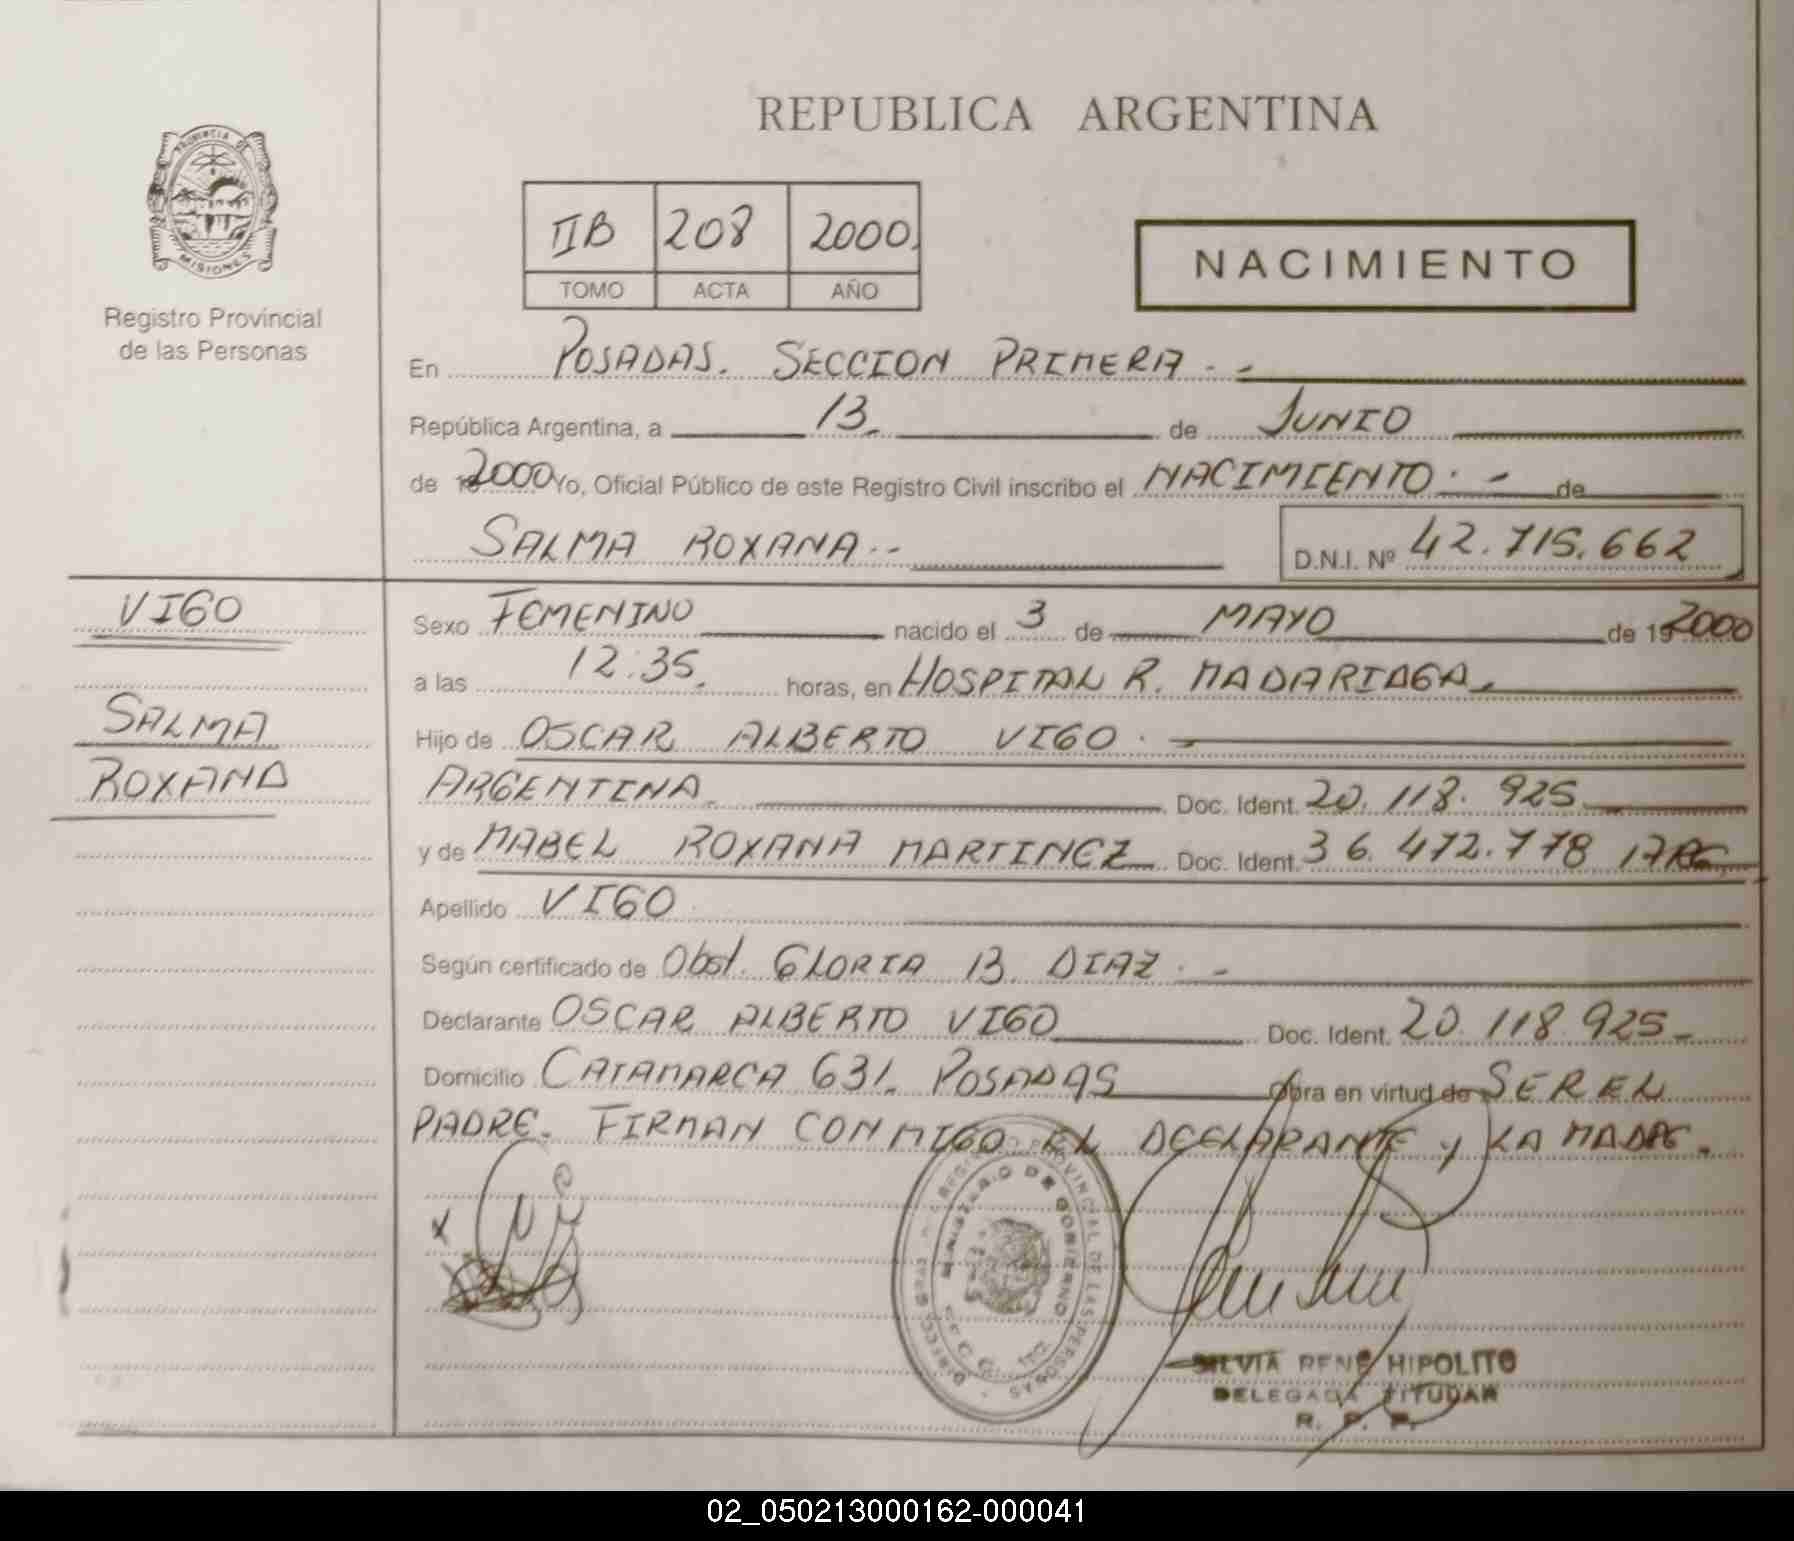 REPUBLICA ARGENTINA
PROVINCIA DE
MISIONES
Registro Provincial
de las Personas
IIB 208 2000
TOMO ACTA AÑO
NACIMIENTO
En POSADAS. SECCION PRIMERA . -
República Argentina, a 13. de JUNIO
de 2000 Yo, Oficial Público de este Registro Civil inscribo el NACIMIENTO . - de
SALMA ROXANA . - D.N.I. Nº 42.715.662
VIGO
SALMA
ROXANA
Sexo FEMENINO nacido el 3 de MAYO de 192000
a las 12:35. horas, en HOSPITAL R. MADARIAGA.
Hijo de OSCAR ALBERTO VIGO .
ARGENTINA. Doc. Ident. 20.118.925
y de MABEL ROXANA MARTINEZ Doc. Ident. 36.472.778 ARG
Apellido VIGO
Según certificado de Obst. GLORIA B. DIAZ . -
Declarante OSCAR ALBERTO VIGO Doc. Ident. 20.118.925 -
Domicilio CATAMARCA 631. POSADAS Obra en virtud de SER EL
PADRE. FIRMAN CONMIGO EL DECLARANTE y LA MADRE.
REGISTRO PROVINCIAL DE LAS PERSONAS
MINISTERIO DE GOBIERNO
SILVIA RENE HIPOLITO
DELEGADA TITULAR
R. P. P.
02_050213000162-000041